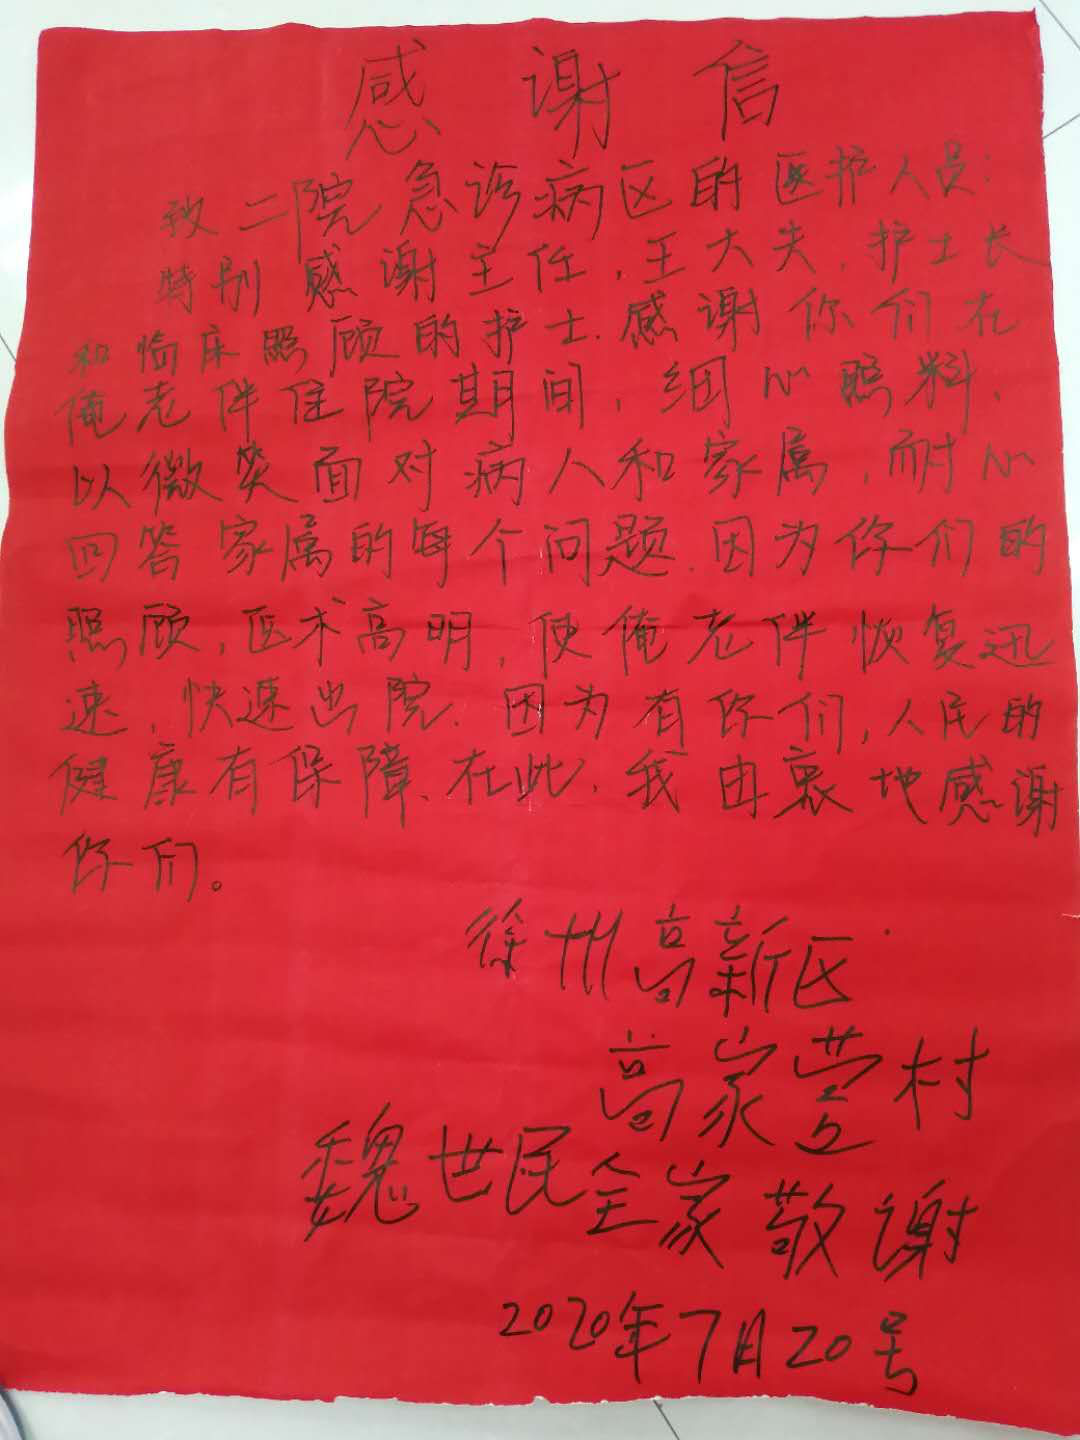 感谢信
致二院急诊病区的医护人员:
特别感谢主任,王大夫,护士长
和临床照顾的护士.感谢你们在
俺老伴住院期间,细心照料、
以微笑面对病人和家属,耐心
回答家属的每个问题.因为你们的
照顾,医术高明,使俺老伴恢复迅
速,快速出院.因为有你们,人民的
健康有保障、在此,我由衷地感谢
你们。
徐州高新区
高家营村
魏世民全家敬谢
2020年7月20号